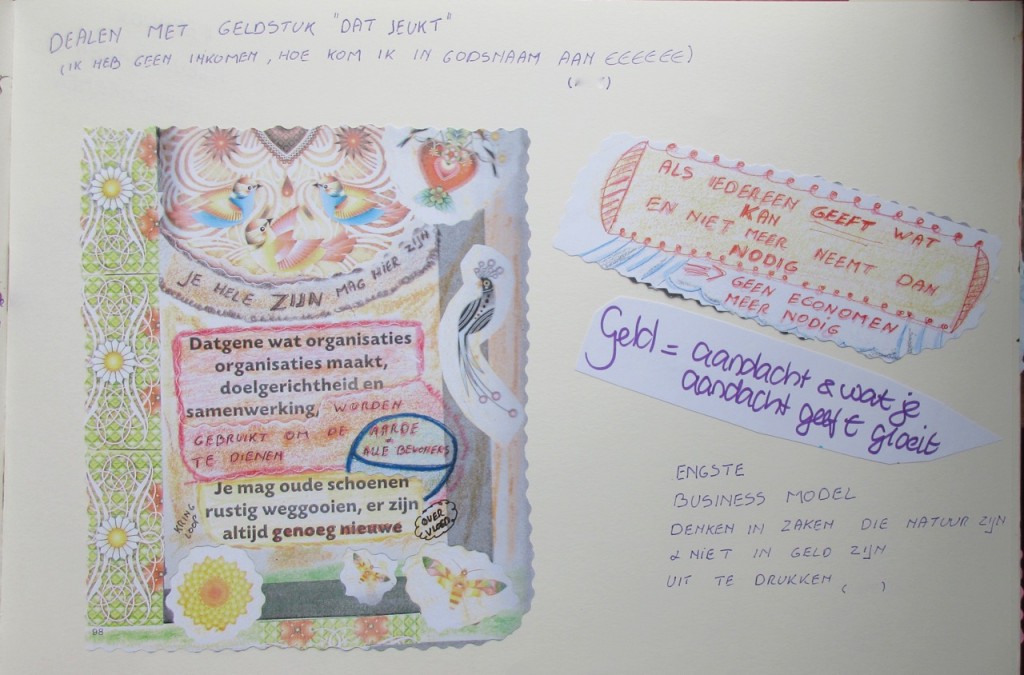 DEALEN MET GELDSTUK "DAT JEUKT"
(IK HEB GEEN INKOMEN, HOE KOM IK IN GODSNAAM AAN €€€€€€)
JE HELE ZIJN MAG HIER ZIJN
Datgene wat organisaties
organisaties maakt,
doelgerichtheid en
samenwerking, WORDEN
GEBRUIKT OM DE AARDE
TE DIENEN + ALLE BEWONERS
Je mag oude schoenen
rustig weggooien, er zijn
altijd genoeg nieuwe
KRING
LOOP
OVER
VLOED
98
ALS IEDEREEN GEEFT WAT
KAN
EN NIET MEER NEEMT DAN
NODIG
⇒ GEEN ECONOMEN
MEER NODIG
Geld = aandacht & wat je
aandacht geeft gloeit
ENGSTE
BUSINESS MODEL
DENKEN IN ZAKEN DIE NATUUR ZIJN
& NIET IN GELD ZIJN
UIT TE DRUKKEN ( )